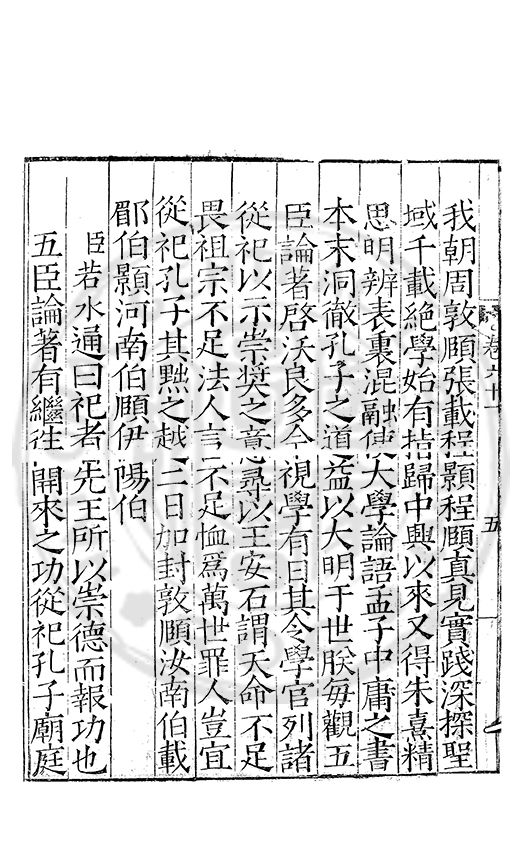 卷六十一
五
我朝周敦頤張載程顥程頤真見實踐深探聖
域千載絕學始有指歸中興以來又得朱熹精
思明辨表裏混融使大學論語孟子中庸之書
本末洞徹孔子之道益以大明于世朕每觀五
臣論著啓沃良多今視學有日其令學官列諸
從祀以示崇奬之意尋以王安石謂天命不足
畏祖宗不足法人言不足恤爲萬世罪人豈宜
從祀孔子其黜之越二日加封敦頤汝南伯載
郿伯顥河南伯頤伊陽伯
臣若水通曰祀者先王所以崇德而報功也
五臣論著有繼往開來之功從祀孔子廟庭